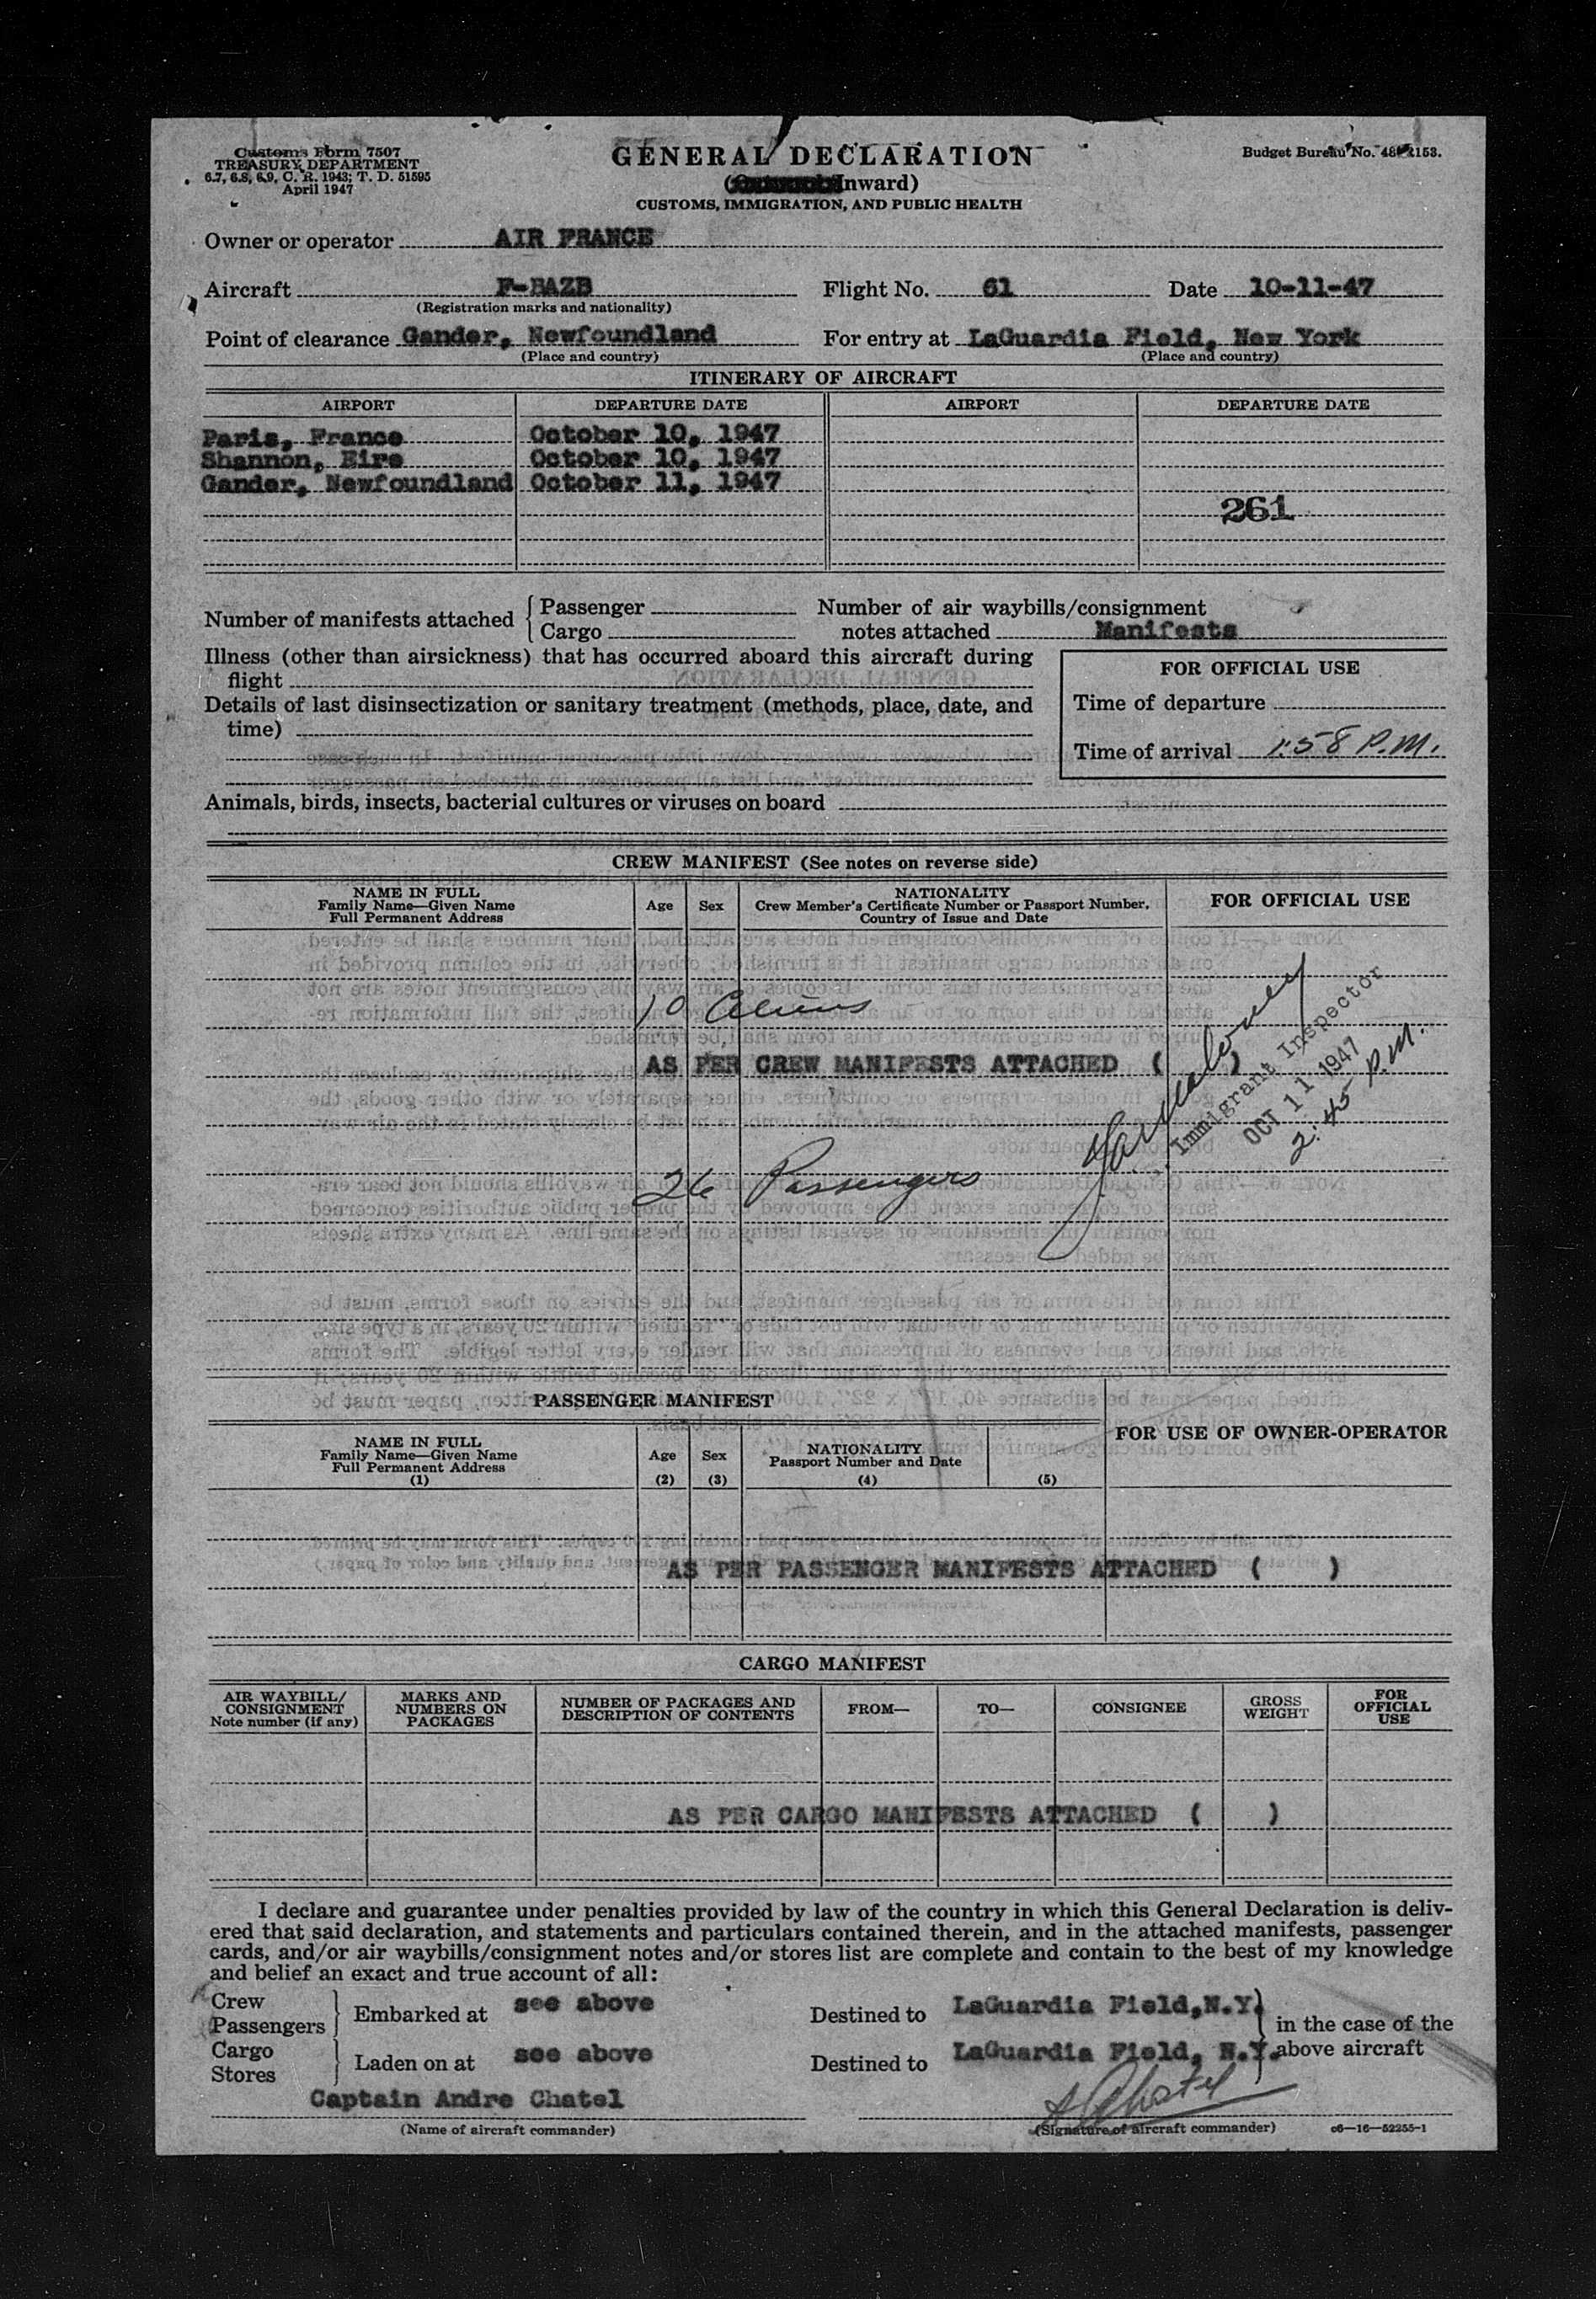 Customs Form 7507
TREASURY DEPARTMENT
6.7, 6.8, 6.9, C. R. 1943; T. D. 51595
April 1947
GENERAL DECLARATION
Inward)
CUSTOMS, IMMIGRATION, AND PUBLIC HEALTH
Budget Bureau No. 48-R153.
Owner or operator AIR FRANCE
Aircraft F-BAZB Flight No. 61 Date 10-11-47
(Registration marks and nationality)
Point of clearance Gander, Newfoundland For entry at LaGuardia Field, New York
(Place and country) (Place and country)
ITINERARY OF AIRCRAFT
AIRPORT DEPARTURE DATE AIRPORT DEPARTURE DATE
Paris, France October 10, 1947
Shannon, Eire October 10, 1947
Gander, Newfoundland October 11, 1947
261
Number of manifests attached { Passenger Number of air waybills/consignment
Cargo notes attached Manifests
Illness (other than airsickness) that has occurred aboard this aircraft during
flight
FOR OFFICIAL USE
Details of last disinsectization or sanitary treatment (methods, place, date, and
time)
Time of departure
Time of arrival 1:58 P.M.
Animals, birds, insects, bacterial cultures or viruses on board
CREW MANIFEST (See notes on reverse side)
NAME IN FULL
Family Name—Given Name
Full Permanent Address
Age Sex
NATIONALITY
Crew Member's Certificate Number or Passport Number,
Country of Issue and Date
FOR OFFICIAL USE
10 Aliens
AS PER CREW MANIFESTS ATTACHED ( )
Immigrant Inspector
OCT 11 1947
2:45 P.M.
26 Passengers
PASSENGER MANIFEST
NAME IN FULL
Family Name—Given Name
Full Permanent Address
(1)
Age
(2)
Sex
(3)
NATIONALITY
Passport Number and Date
(4)
(5)
FOR USE OF OWNER-OPERATOR
AS PER PASSENGER MANIFESTS ATTACHED ( )
CARGO MANIFEST
AIR WAYBILL/
CONSIGNMENT
Note number (if any)
MARKS AND
NUMBERS ON
PACKAGES
NUMBER OF PACKAGES AND
DESCRIPTION OF CONTENTS
FROM—
TO—
CONSIGNEE
GROSS
WEIGHT
FOR
OFFICIAL
USE
AS PER CARGO MANIFESTS ATTACHED ( )
I declare and guarantee under penalties provided by law of the country in which this General Declaration is deliv-
ered that said declaration, and statements and particulars contained therein, and in the attached manifests, passenger
cards, and/or air waybills/consignment notes and/or stores list are complete and contain to the best of my knowledge
and belief an exact and true account of all:
Crew
Passengers } Embarked at see above Destined to LaGuardia Field,N.Y.
Cargo
Stores } Laden on at see above Destined to LaGuardia Field, N.Y.
in the case of the
above aircraft
Captain Andre Chatel
A Chatel
(Name of aircraft commander) (Signature of aircraft commander) c6—16—52255-1